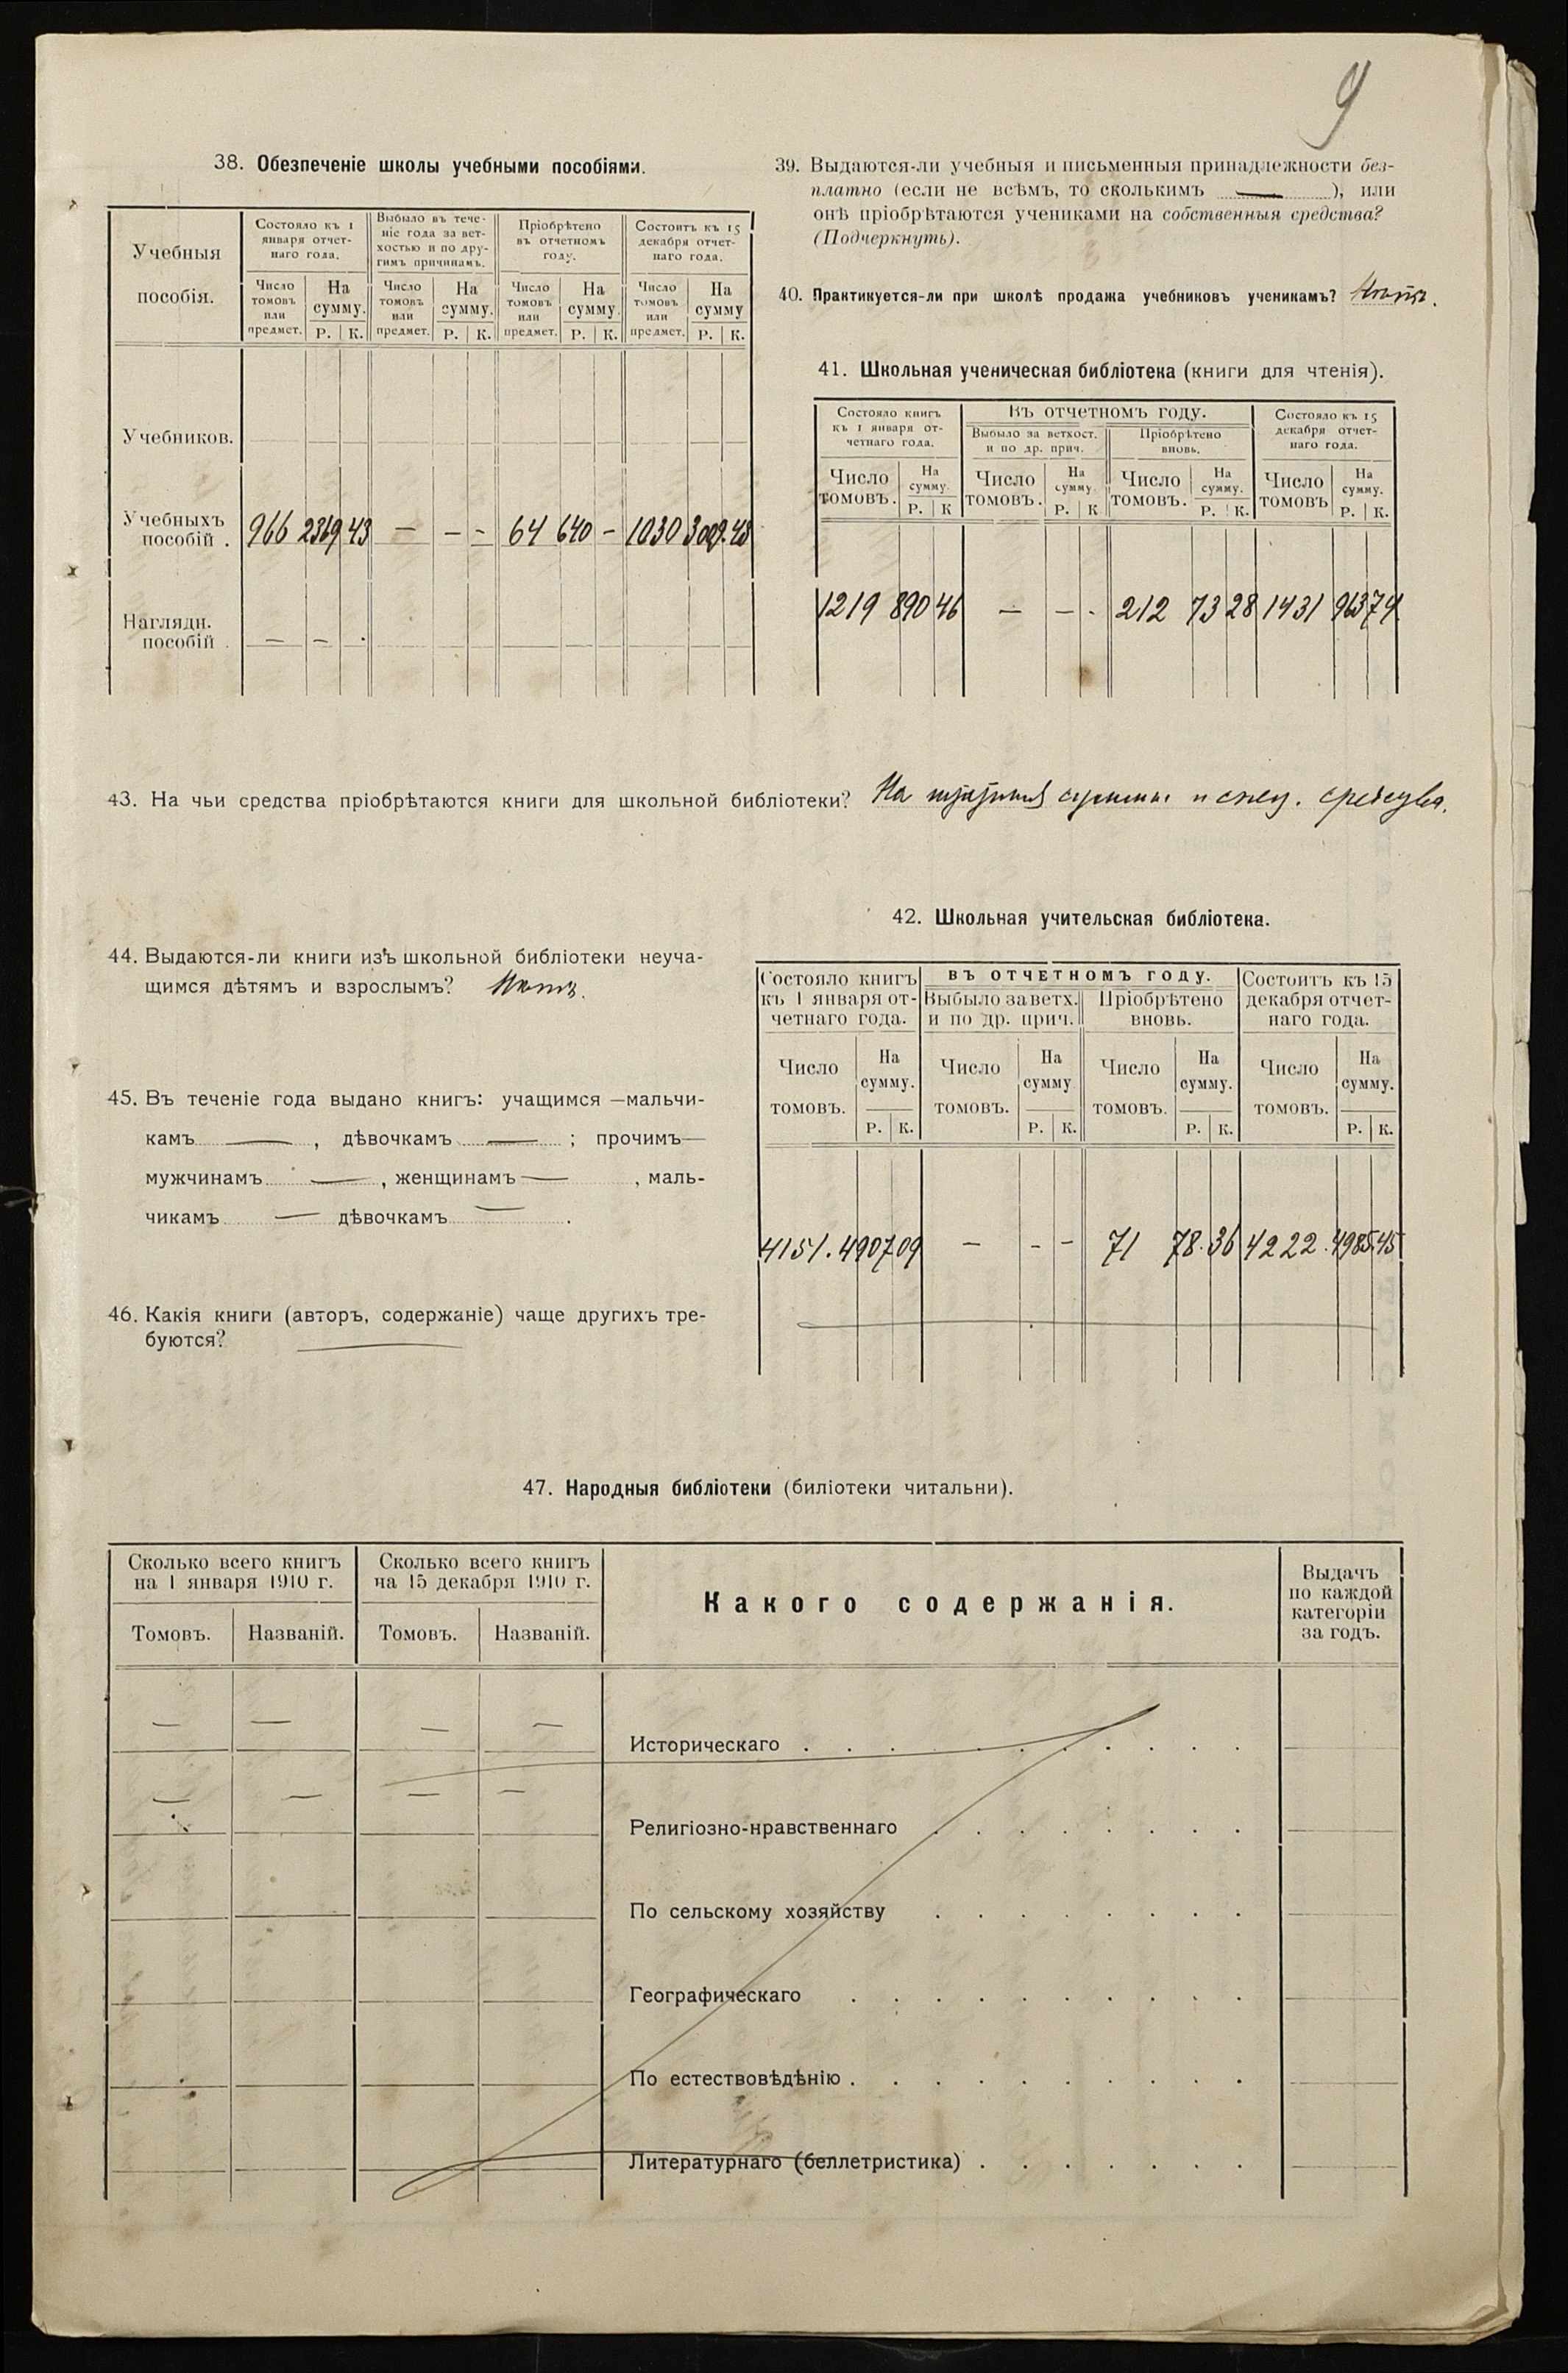 9
38. Обезпеченіе школы учебными пособіями.
Учебныя пособія.
Состояло къ 1 января отчет-наго года.
Выбыло въ тече-ніе года за вет-хостью и по дру-гимъ причинамъ.
Пріобрѣтено въ отчетномъ году.
Состоитъ къ 15 декабря отчет-наго года.
Число томовъ или предмет. На сумму. Р. К. Число томовъ или предмет. На сумму. Р. К. Число томовъ или предмет. На сумму. Р. К. Число томовъ или предмет. На сумму Р. К.
Учебниковъ.
Учебныхъ пособій . 966 2369 43 — — - 64 640 — 1030 3009.43
Наглядн. пособій . — — .
39. Выдаются-ли учебныя и письменныя принадлежности без-
платно (если не всѣмъ, то сколькимъ — ), или
онѣ пріобрѣтаются учениками на собственныя средства?
(Подчеркнуть).
40. Практикуется-ли при школѣ продажа учебниковъ ученикамъ? Нѣтъ.
41. Школьная ученическая библіотека (книги для чтенія).
Состояло книгъ къ 1 января от-четнаго года.
Въ отчетномъ году.
Выбыло за ветхост. и по др. прич.
Пріобрѣтено вновь.
Состояло къ 15 декабря отчет-наго года.
Число томовъ. На сумму. Р. К Число томовъ. На сумму. Р. К Число томовъ. На сумму. Р. К. Число томовъ На сумму. Р. К.
1219 890 46 — — - 212 73 28 1431 963 74
43. На чьи средства пріобрѣтаются книги для школьной библіотеки? На суммы и спец. средства.
44. Выдаются-ли книги изъ школьной библіотеки неуча-
щимся дѣтямъ и взрослымъ? Нѣтъ.
45. Въ теченіе года выдано книгъ: учащимся —мальчи-
камъ — , дѣвочкамъ — ; прочимъ—
мужчинамъ — , женщинамъ — , маль-
чикамъ — дѣвочкамъ — .
46. Какія книги (авторъ, содержаніе) чаще другихъ тре-
буются? —
42. Школьная учительская библіотека.
Состояло книгъ къ 1 января от-четнаго года.
въ отчетномъ году.
Выбыло за ветх. и по др. прич.
Пріобрѣтено вновь.
Состоитъ къ 15 декабря отчет-наго года.
Число томовъ. На сумму. Р. К. Число томовъ. На сумму Р. К. Число томовъ. На сумму. Р. К. Число томовъ. На сумму. Р. К.
4151. 4907 09 — - - 71 78.36 4222. 4985 45
47. Народныя библіотеки (биліотеки читальни).
Сколько всего книгъ на 1 января 1910 г.
Сколько всего книгъ на 15 декабря 1910 г.
Какого содержанія.
Выдачъ по каждой категоріи за годъ.
Томовъ. Названій. Томовъ. Названій.
— — — — Историческаго
— — — — Религіозно-нравственнаго
По сельскому хозяйству
Географическаго
По естествовѣдѣнію
Литературнаго (беллетристика)